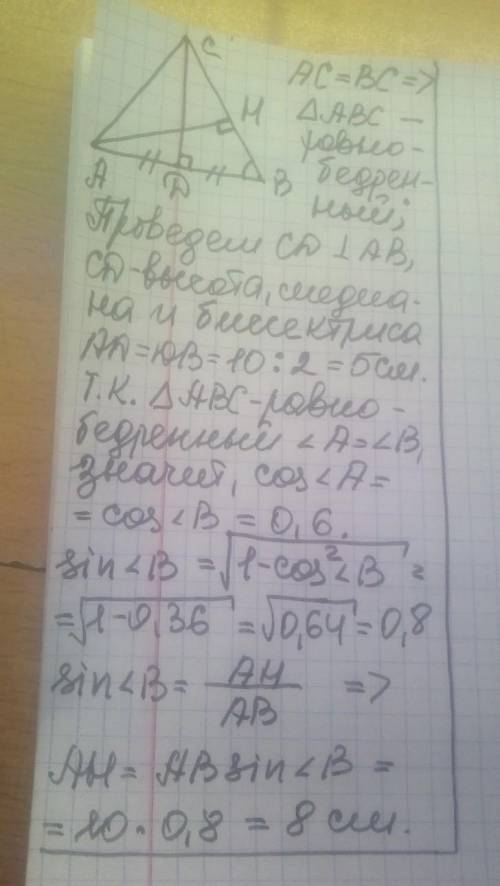 C
H
A
D
B
AC = BC =>
△ABC –
равно-
бедрен-
ный;
Проведем CD ⊥ AB,
CD - высота, медиа-
на и биссектриса
AD = DB = 10 : 2 = 5 см.
Т.К. △ABC - равно -
бедренный ∠A = ∠B,
значит, cos∠A =
= cos∠B = 0,6.
sin∠B = √(1 - cos²∠B) =
= √(1 - 0,36) = √(0,64) = 0,8
sin∠B = AH/AB =>
AH = AB sin∠B =
= 10 · 0,8 = 8 см.